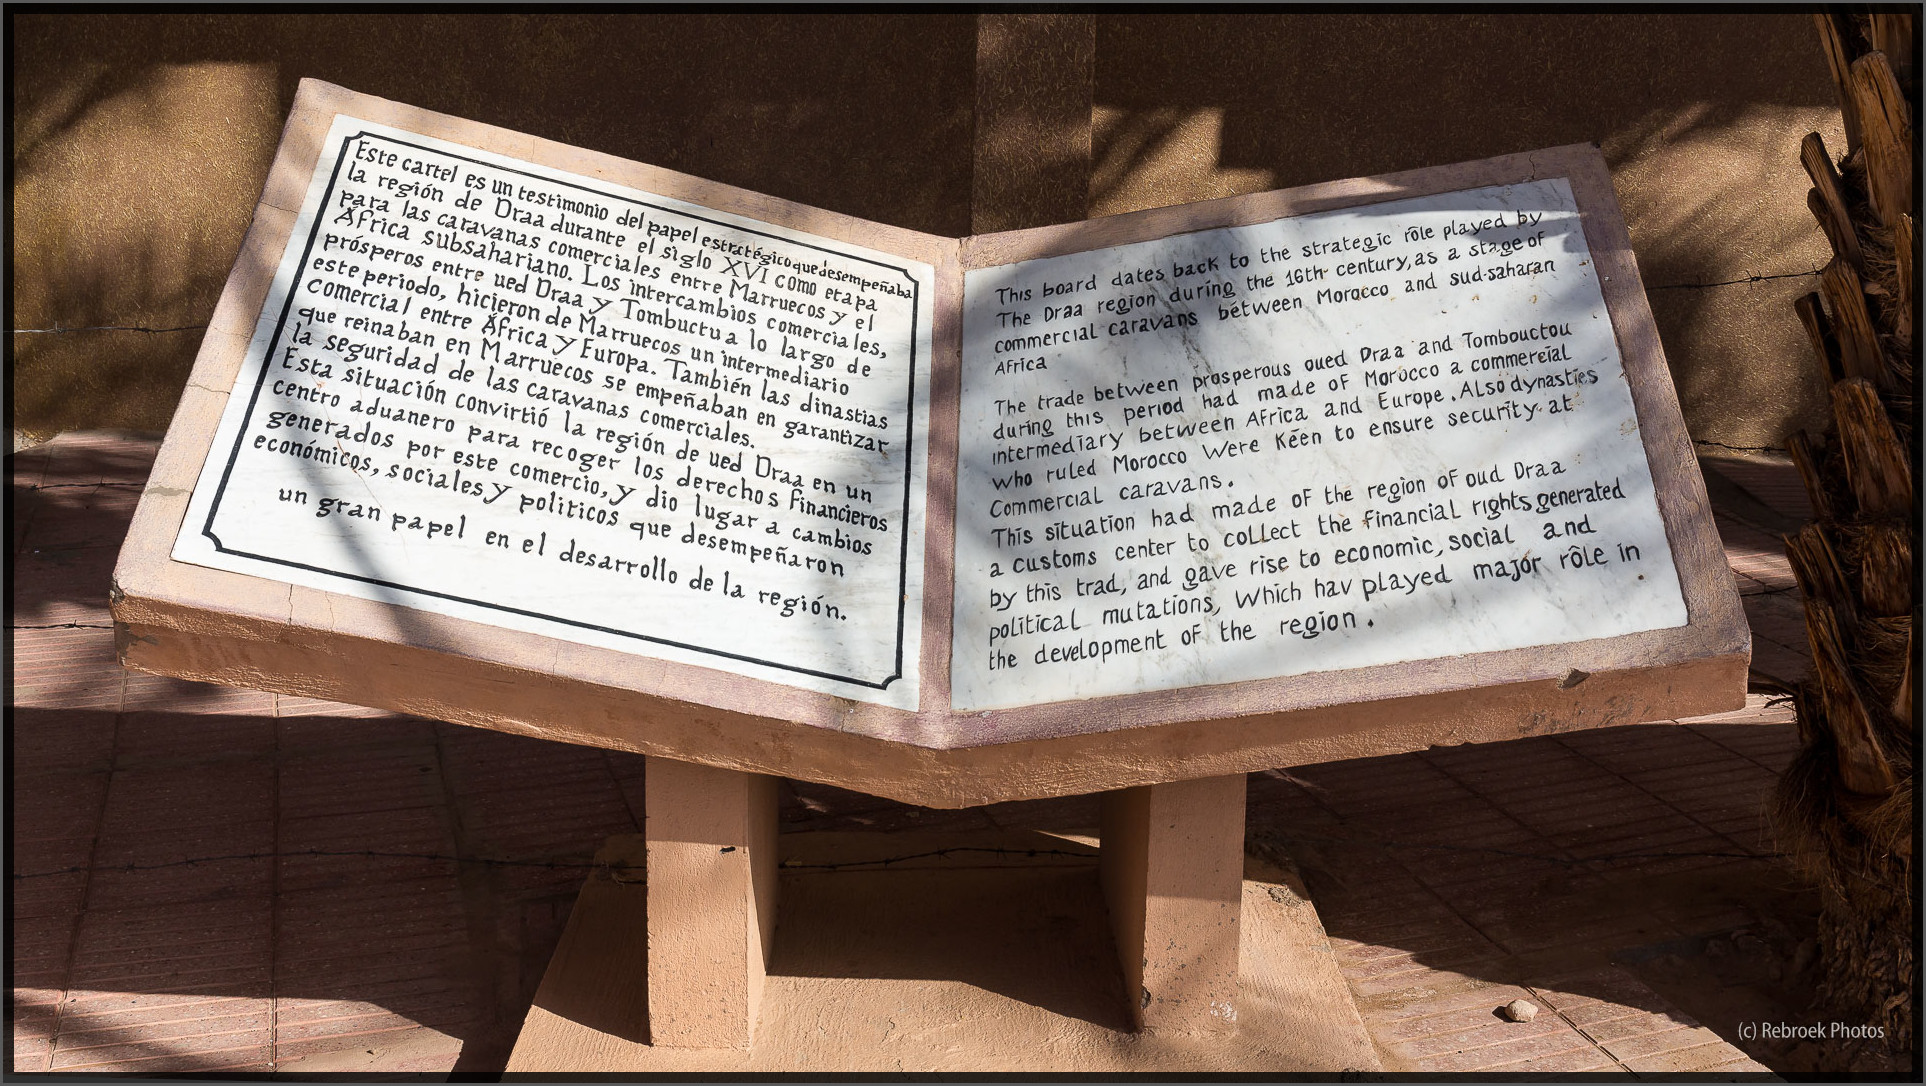 Este cartel es un testimonio del papel estratégico que desempeñaba
la región de Draa durante el siglo XVI como etapa
para las caravanas comerciales entre Marruecos y el
África subsahariano. Los intercambios comerciales,
prósperos entre ued Draa y Tombuctu a lo largo de
este periodo, hicieron de Marruecos un intermediario
comercial entre África y Europa. También las dinastias
que reinaban en Marruecos se empeñaban en garantizar
la seguridad de las caravanas comerciales.
Esta situación convirtió la región de ued Draa en un
centro aduanero para recoger los derechos financieros
generados por este comercio, y dio lugar a cambios
económicos, sociales y politicos que desempeñaron
un gran papel en el desarrollo de la región.
This board dates back to the strategic rôle played by
The Draa region during the 16th century, as a stage of
commercial caravans between Morocco and sud-saharan
Africa
The trade between prosperous oued Draa and Tombouctou
during this period had made of Morocco a commercial
intermediary between Africa and Europe. Also dynasties
who ruled Morocco Were Keen to ensure security at
Commercial caravans.
This situation had made of the region of oud Draa
a customs center to collect the financial rights generated
by this trad, and gave rise to economic, social and
political mutations, which hav played major rôle in
the development of the region.
(c) Rebroek Photos